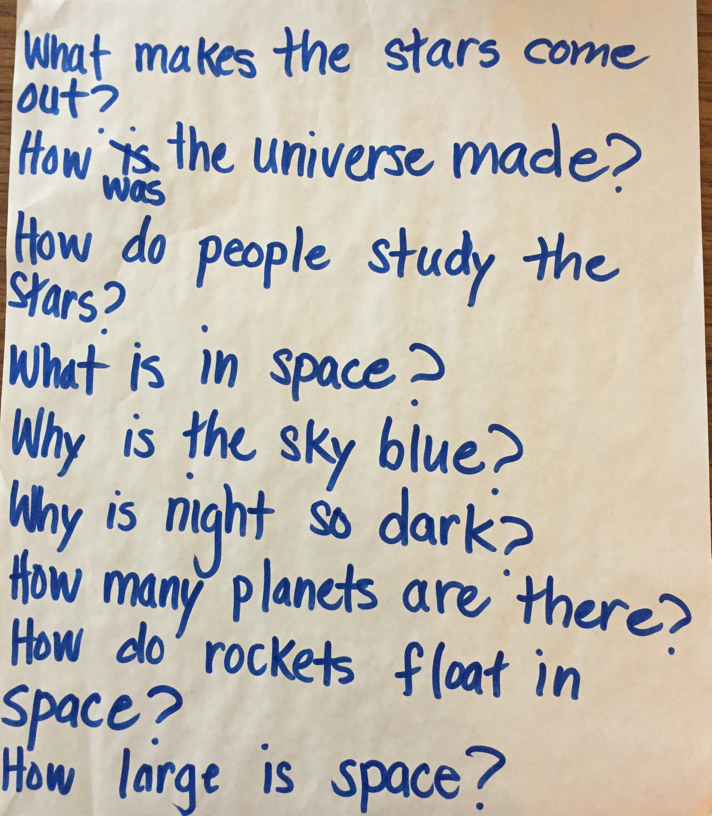 What makes the stars come
out?
How is the universe made?
was
How do people study the
stars?
What is in space?
Why is the sky blue?
Why is night so dark?
How many planets are there?
How do rockets float in
space?
How large is space?